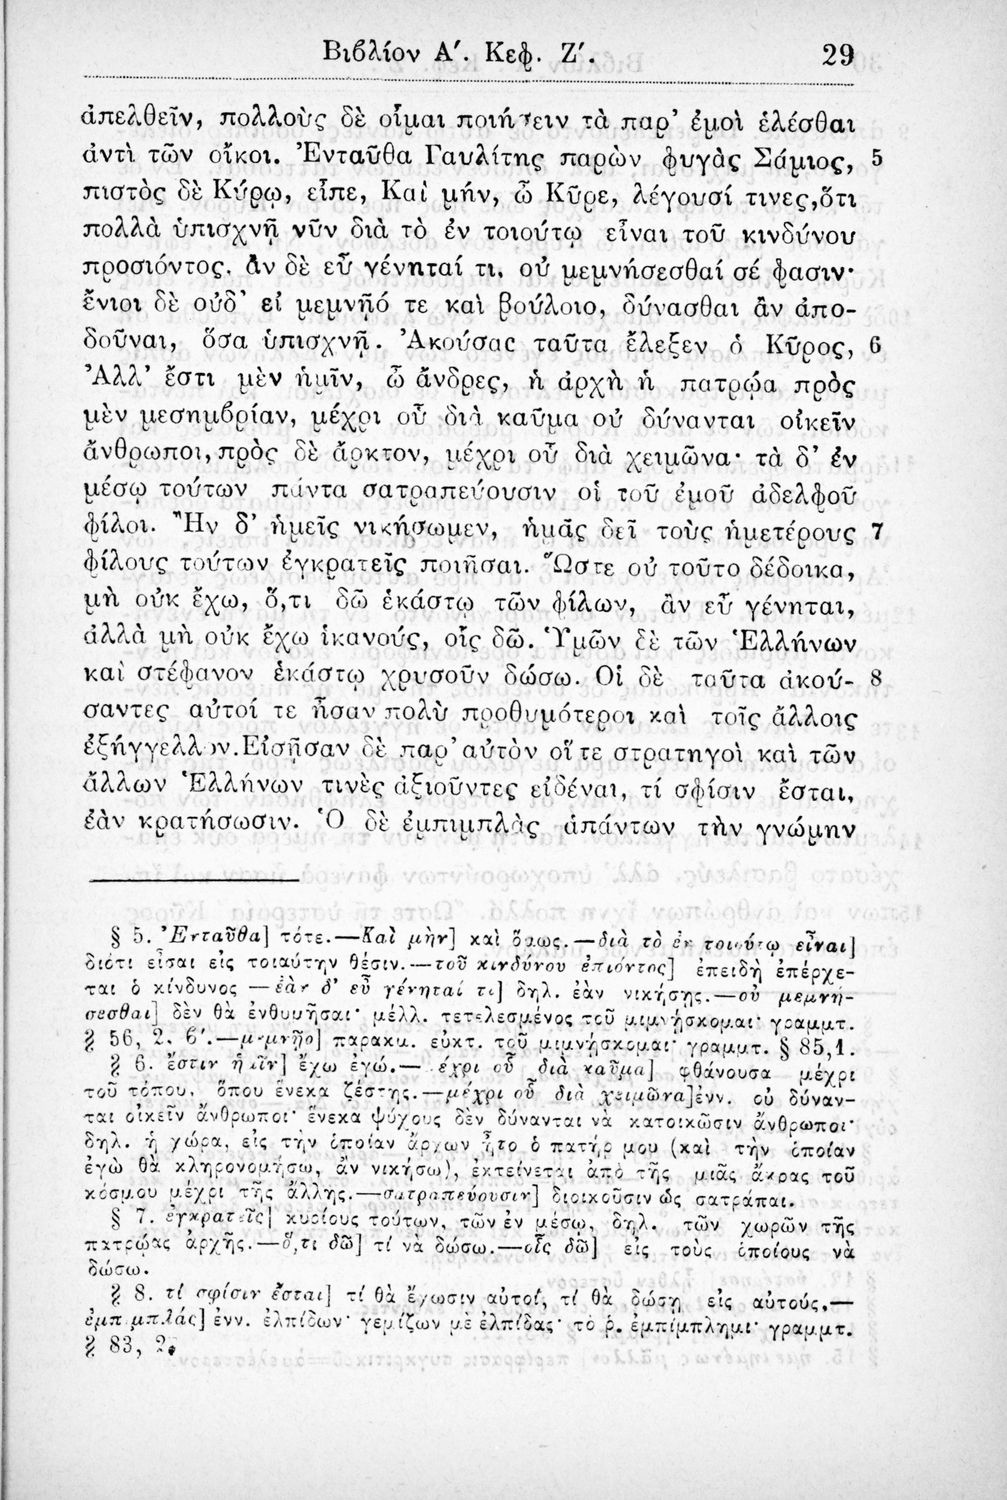 Βιβλίον Α΄. Κεφ. Ζ΄. 29
ἀπελθεῖν, πολλοὺς δὲ οἶμαι ποιήσειν τὰ παρ' ἐμοὶ ἑλέσθαι
ἀντὶ τῶν οἴκοι. Ἐνταῦθα Γαυλίτης παρὼν φυγὰς Σάμιος, 5
πιστὸς δὲ Κύρῳ, εἶπε, Καὶ μήν, ὦ Κῦρε, λέγουσί τινες, ὅτι
πολλὰ ὑπισχνῇ νῦν διὰ τὸ ἐν τοιούτῳ εἶναι τοῦ κινδύνου
προσιόντος. ἂν δὲ εὖ γένηταί τι, οὐ μεμνήσεσθαί σέ φασιν·
ἔνιοι δὲ οὐδ' εἰ μεμνῇό τε καὶ βούλοιο, δύνασθαι ἂν ἀπο-
δοῦναι, ὅσα ὑπισχνῇ. Ἀκούσας ταῦτα ἔλεξεν ὁ Κῦρος, 6
Ἀλλ' ἔστι μὲν ἡμῖν, ὦ ἄνδρες, ἡ ἀρχὴ ἡ πατρῴα πρὸς
μὲν μεσημβρίαν, μέχρι οὗ διὰ καῦμα οὐ δύνανται οἰκεῖν
ἄνθρωποι, πρὸς δὲ ἄρκτον, μέχρι οὗ διὰ χειμῶνα· τὰ δ' ἐν
μέσῳ τούτων πάντα σατραπεύουσιν οἱ τοῦ ἐμοῦ ἀδελφοῦ
φίλοι. Ἢν δ' ἡμεῖς νικήσωμεν, ἡμᾶς δεῖ τοὺς ἡμετέρους 7
φίλους τούτων ἐγκρατεῖς ποιῆσαι. Ὥστε οὐ τοῦτο δέδοικα,
μὴ οὐκ ἔχω, ὅ,τι δῶ ἑκάστῳ τῶν φίλων, ἂν εὖ γένηται,
ἀλλὰ μὴ οὐκ ἔχω ἱκανούς, οἷς δῶ. Ὑμῶν δὲ τῶν Ἑλλήνων
καὶ στέφανον ἑκάστῳ χρυσοῦν δώσω. Οἱ δὲ ταῦτα ἀκού- 8
σαντες αὐτοί τε ἦσαν πολὺ προθυμότεροι καὶ τοῖς ἄλλοις
ἐξήγγελλον. Εἰσῇσαν δὲ παρ' αὐτὸν οἵ τε στρατηγοὶ καὶ τῶν
ἄλλων Ἑλλήνων τινὲς ἀξιοῦντες εἰδέναι, τί σφίσιν ἔσται,
ἐὰν κρατήσωσιν. Ὁ δὲ ἐμπιμπλὰς ἁπάντων τὴν γνώμην
§ 5. Ἐνταῦθα] τότε.—Καὶ μὴν] καὶ ὅμως.—διὰ τὸ ἐν τοιούτῳ εἶναι]
διότι εἶσαι εἰς τοιαύτην θέσιν.—τοῦ κινδύνου ἐπιόντος] ἐπειδὴ ἐπέρχε-
ται ὁ κίνδυνος—ἐὰν δ' εὖ γένηταί τι] δηλ. ἐὰν νικήσῃς.—οὐ μεμνή-
σεσθαι] δὲν θὰ ἐνθυμῆσαι· μέλλ. τετελεσμένος τοῦ μιμνήσκομαι· γραμμτ.
§ 56, 2. β΄.—μεμνῇο] παρακμ. εὐκτ. τοῦ μιμνήσκομαι· γραμμτ. § 85,1.
§ 6. ἔστιν ἡμῖν] ἔχω ἐγώ.—έχρι οὗ διὰ καῦμα] φθάνουσα μέχρι
τοῦ τόπου, ὅπου ἕνεκα ζέστης.—μέχρι οὗ διὰ χειμῶνα] ἐνν. οὐ δύναν-
ται οἰκεῖν ἄνθρωποι· ἕνεκα ψύχους δὲν δύνανται νὰ κατοικῶσιν ἄνθρωποι·
δηλ. ἡ χώρα, εἰς τὴν ὁποίαν ἄρχων ἦτο ὁ πατήρ μου (καὶ τὴν ὁποίαν
ἐγὼ θὰ κληρονομήσω, ἂν νικήσω), ἐκτείνεται ἀπὸ τῆς μιᾶς ἄκρας τοῦ
κόσμου μέχρι τῆς ἄλλης.—σατραπεύουσιν] διοικοῦσιν ὡς σατράπαι.
§ 7. ἐγκρατεῖς] κυρίους τούτων, τῶν ἐν μέσῳ, δηλ. τῶν χωρῶν τῆς
πατρῴας ἀρχῆς.—ὅ,τι δῶ] τί νὰ δώσω.—οἷς δῶ] εἰς τοὺς ὁποίους νὰ
δώσω.
§ 8. τί σφίσιν ἔσται] τί θὰ ἔχωσιν αὐτοί, τί θὰ δώσῃ εἰς αὐτούς.—
ἐμπιμπλὰς] ἐνν. ἐλπίδων· γεμίζων μὲ ἐλπίδας· τὸ ῥ. ἐμπίμπλημι· γραμμτ.
§ 83, 2.